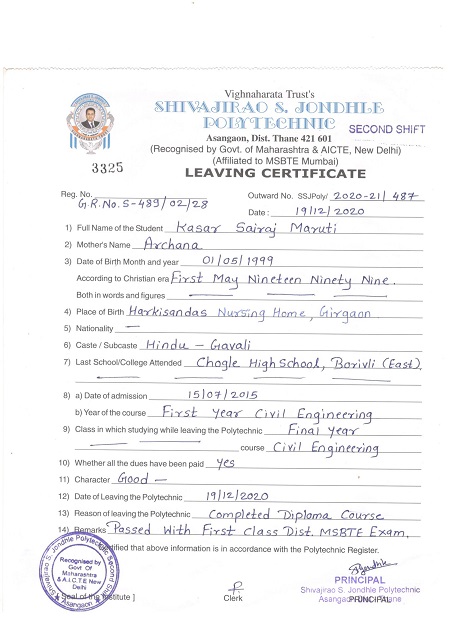 Vighnaharata Trust's
SHIVAJIRAO S. JONDHLE
POLYTECHNIC
Asangaon, Dist. Thane 421 601
SECOND SHIFT
(Recognised by Govt. of Maharashtra & AICTE, New Delhi)
(Affiliated to MSBTE Mumbai)
3325
LEAVING CERTIFICATE
Reg. No. G.R.No. S-489/02/28
Outward No. SSJPoly/ 2020-21/487
Date : 19/12/2020
1) Full Name of the Student Kasar Sairaj Maruti
2) Mother's Name Archana
3) Date of Birth Month and year 01/05/1999
According to Christian era First May Nineteen Ninety Nine.
Both in words and figures
4) Place of Birth Harkisandas Nursing Home, Girgaon
5) Nationality —
6) Caste / Subcaste Hindu - Gavali
7) Last School/College Attended Chogle High School, Borivli (East).
8) a) Date of admission 15/07/2015
b) Year of the course First Year Civil Engineering
9) Class in which studying while leaving the Polytechnic Final Year
course Civil Engineering
10) Whether all the dues have been paid Yes
11) Character Good —
12) Date of Leaving the Polytechnic 19/12/2020
13) Reason of leaving the Polytechnic Completed Diploma Course
14) Remarks Passed With First Class Dist. MSBTE Exam.
Certified that above information is in accordance with the Polytechnic Register.
Shivajirao S. Jondhle Polytechnic Second Shift
Asangaon
Recognised by
Govt Of
Maharashtra
& A.I.C.T.E New
Delhi
[ Seal of the Institute ]
Clerk
PRINCIPAL
Shivajirao S. Jondhle Polytechnic
PRINCIPAL